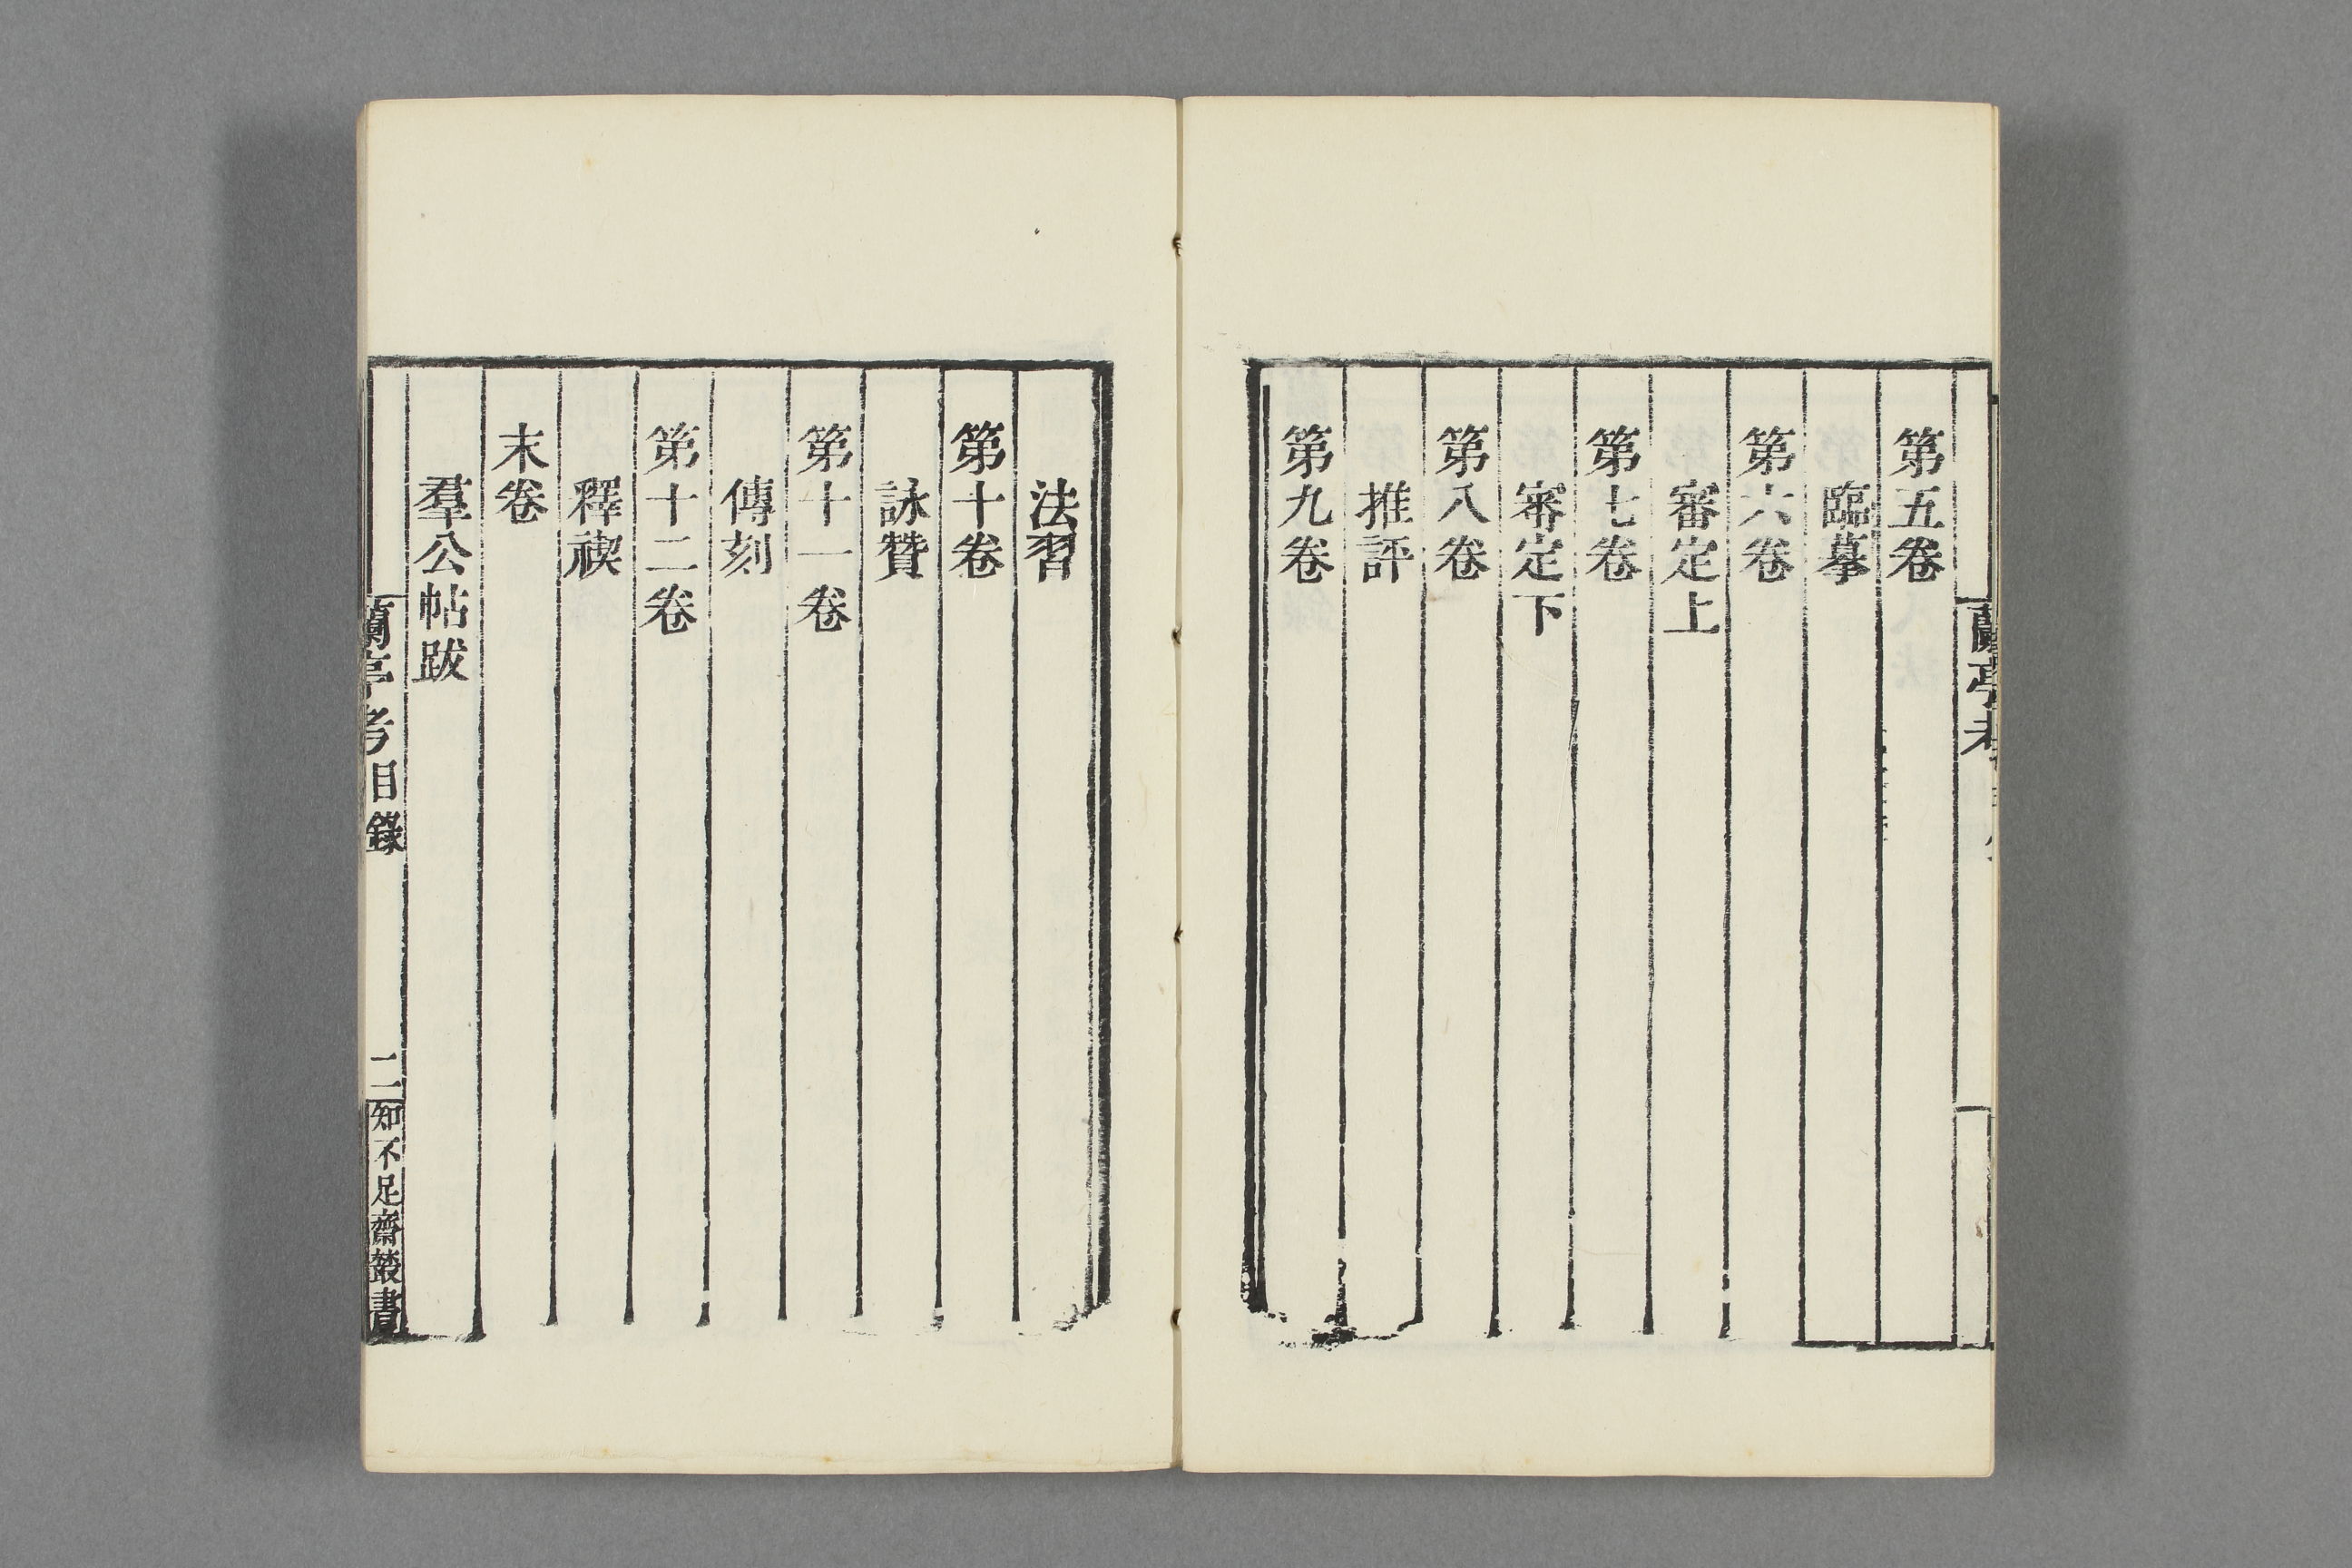 蘭亭考
第五卷
臨摹
第六卷
審定上
第七卷
審定下
第八卷
推評
第九卷
法習
第十卷
詠贊
第十一卷
傳刻
第十二卷
釋禊
末卷
羣公帖跋
蘭亭考目錄
二
知不足齋叢書